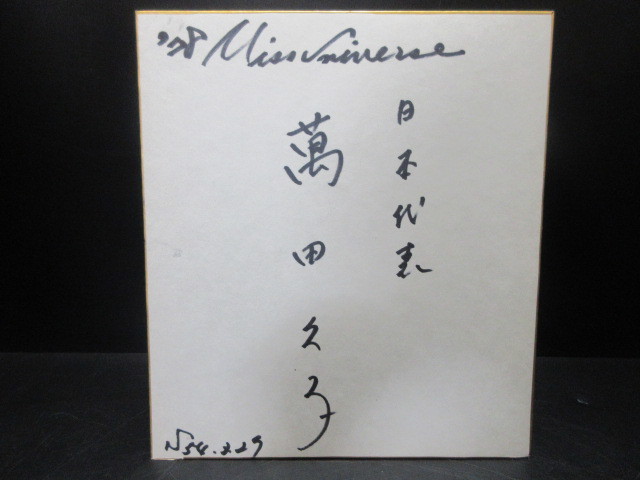 '78 Miss Universe
日本代表
萬田久子
S54.3.29